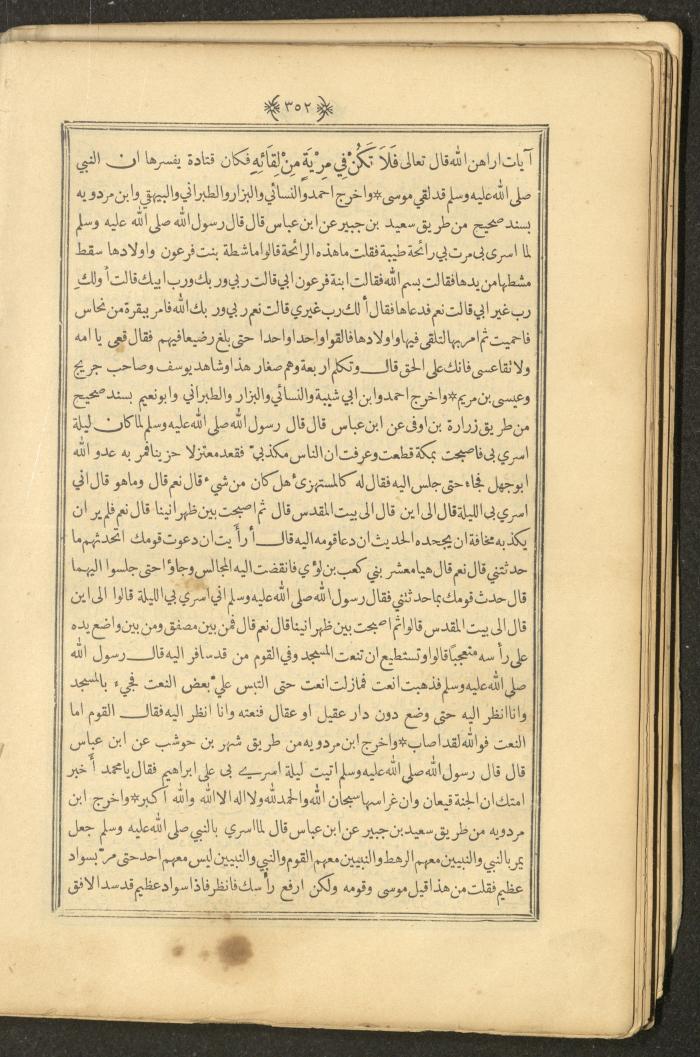 ٣٥٢
آيات اراهن الله قال تعالى فَلَا تَكُنْ فِي مِرْيَةٍ مِنْ لِقَائِهِ فكان قتادة يفسرها ان النبي
صلى الله عليه وسلم قد لقي موسى * واخرج احمد والنسائي والبزار والطبراني والبيهقي وابن مردويه
بسند صحيح من طريق سعيد بن جبير عن ابن عباس قال قال رسول الله صلى الله عليه وسلم
لما اسرى بي مرت بي رائحة طيبة فقلت ما هذه الرائحة قالوا ماشطة بنت فرعون واولادها سقط
مشطها من يدها فقالت بسم الله فقالت ابنة فرعون ابي قالت ربي وربك ورب ابيك قالت أولكِ
رب غير ابي قالت نعم فدعاها فقال ألك رب غيري قالت نعم ربي وربك الله فامر ببقرة من نحاس
فاحميت ثم امر بها لتلقى فيها واولادها فالقوا واحدا واحدا حتى بلغ رضيعا فيهم فقال قعي يا امه
ولا تقاعسى فانك على الحق قال وتكلم اربعة وهم صغار هذا وشاهد يوسف وصاحب جريج
وعيسى بن مريم * واخرج احمد وابن ابي شيبة والنسائي والبزار والطبراني وابو نعيم بسند صحيح
من طريق زرارة بن اوفى عن ابن عباس قال قال رسول الله صلى الله عليه وسلم لما كان ليلة
اسري بي فاصبحت بمكة قطعت وعرفت ان الناس مكذبيّ فقعد معتزلا حزينا فمر به عدو الله
ابو جهل فجاء حتى جلس اليه فقال له كالمستهزئ هل كان من شيء قال نعم قال وما هو قال اني
اسري بي الليلة قال الى اين قال الى بيت المقدس قال ثم اصبحت بين ظهرانينا قال نعم فلم ير ان
يكذبه مخافة ان يجحده الحديث ان دعا قومه اليه قال أرأيت ان دعوت قومك اتحدثهم ما
حدثتني قال نعم قال هيا معشر بني كعب بن لؤي فانقضت اليه المجالس وجاؤا حتى جلسوا اليهما
قال حدث قومك بما حدثتني فقال رسول الله صلى الله عليه وسلم اني اسري بي الليلة قالوا الى اين
قال الى بيت المقدس قالوا ثم اصبحت بين ظهرانينا قال نعم قال فمن بين مصفق ومن بين واضع يده
على رأسه متعجبا قالوا وتستطيع ان تنعت المسجد وفي القوم من قد سافر اليه قال رسول الله
صلى الله عليه وسلم فذهبت انعت فمازلت انعت حتى التبس عليّ بعض النعت فجيء بالمسجد
وانا انظر اليه حتى وضع دون دار عقيل او عقال فنعته وانا انظر اليه فقال القوم اما
النعت فوالله لقد اصاب * واخرج ابن مردويه من طريق شهر بن حوشب عن ابن عباس
قال قال رسول الله صلى الله عليه وسلم اتيت ليلة اسري بي على ابراهيم فقال يا محمد أخبر
امتك ان الجنة قيعان وان غراسها سبحان الله والحمد لله ولا اله الا الله والله اكبر * واخرج ابن
مردويه من طريق سعيد بن جبير عن ابن عباس قال لما اسري بالنبي صلى الله عليه وسلم جعل
يمر بالنبي والنبيين معهم الرهط والنبيين معهم القوم والنبي والنبيين ليس معهم احد حتى مرّ بسواد
عظيم فقلت من هذا قيل موسى وقومه ولكن ارفع رأسك فانظر فاذا سواد عظيم قد سد الافق